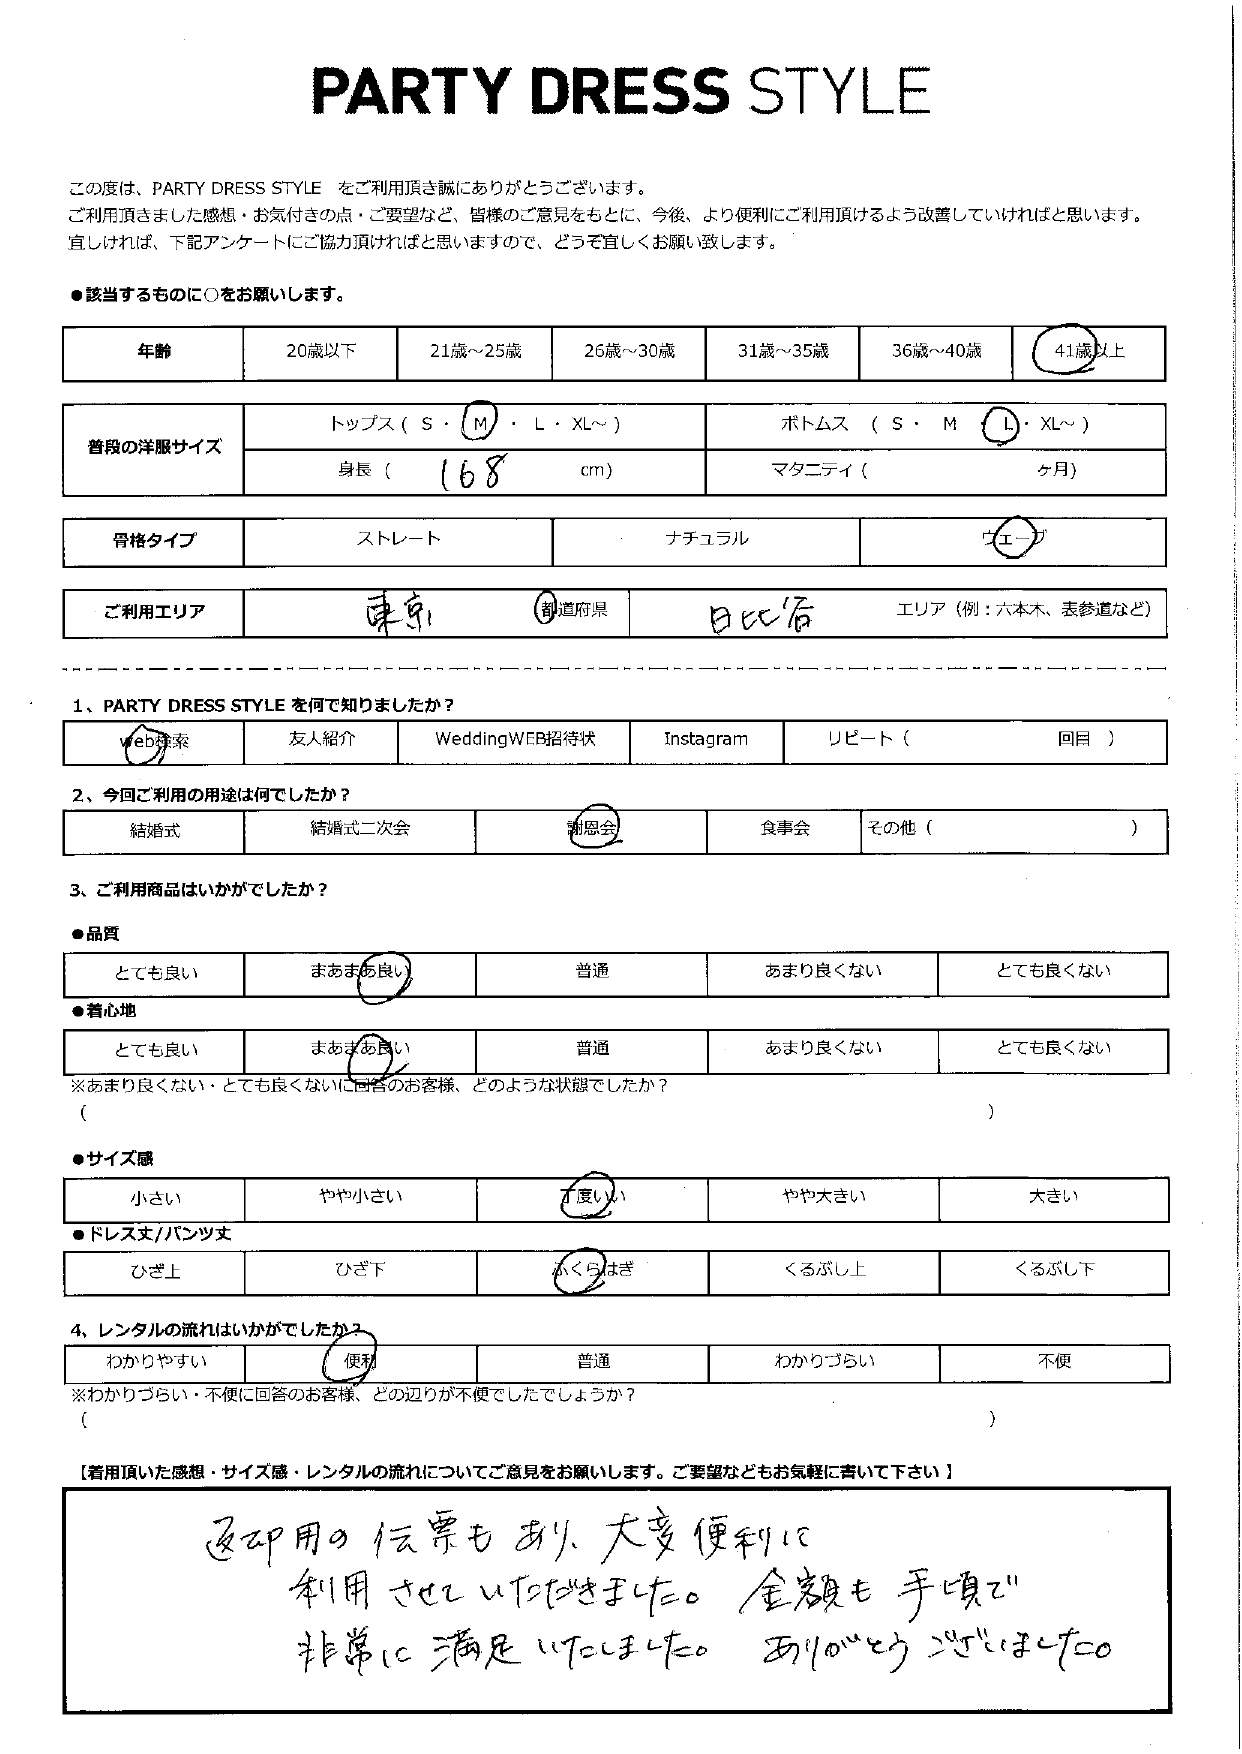 PARTY DRESS STYLE
この度は、PARTY DRESS STYLE をご利用頂き誠にありがとうございます。
ご利用頂きました感想・お気付きの点・ご要望など、皆様のご意見をもとに、今後、より便利にご利用頂けるよう改善していければと思います。
宜しければ、下記アンケートにご協力頂ければと思いますので、どうぞ宜しくお願い致します。
●該当するものに○をお願いします。
年齢 20歳以下 21歳～25歳 26歳～30歳 31歳～35歳 36歳～40歳 41歳以上
普段の洋服サイズ トップス ( S ・ M ・ L ・ XL～ ) ボトムス ( S ・ M ・ L ・ XL～ )
身長 ( 168 cm) マタニティ ( ヶ月)
骨格タイプ ストレート ナチュラル ウェーブ
ご利用エリア 東京 都道府県 日比谷 エリア（例：六本木、表参道など）
1、PARTY DRESS STYLE を何で知りましたか？
web検索 友人紹介 WeddingWEB招待状 Instagram リピート ( 回目 )
2、今回ご利用の用途は何でしたか？
結婚式 結婚式二次会 謝恩会 食事会 その他 ( )
3、ご利用商品はいかがでしたか？
●品質
とても良い まあまあ良い 普通 あまり良くない とても良くない
●着心地
とても良い まあまあ良い 普通 あまり良くない とても良くない
※あまり良くない・とても良くないに回答のお客様、どのような状態でしたか？
( )
●サイズ感
小さい やや小さい 丁度いい やや大きい 大きい
●ドレス丈/パンツ丈
ひざ上 ひざ下 ふくらはぎ くるぶし上 くるぶし下
4、レンタルの流れはいかがでしたか？
わかりやすい 便利 普通 わかりづらい 不便
※わかりづらい・不便に回答のお客様、どの辺りが不便でしたでしょうか？
( )
【着用頂いた感想・サイズ感・レンタルの流れについてご意見をお願いします。ご要望などもお気軽に書いて下さい】
返却用の伝票もあり、大変便利に
利用させていただきました。金額も手頃で
非常に満足いたしました。ありがとうございました。